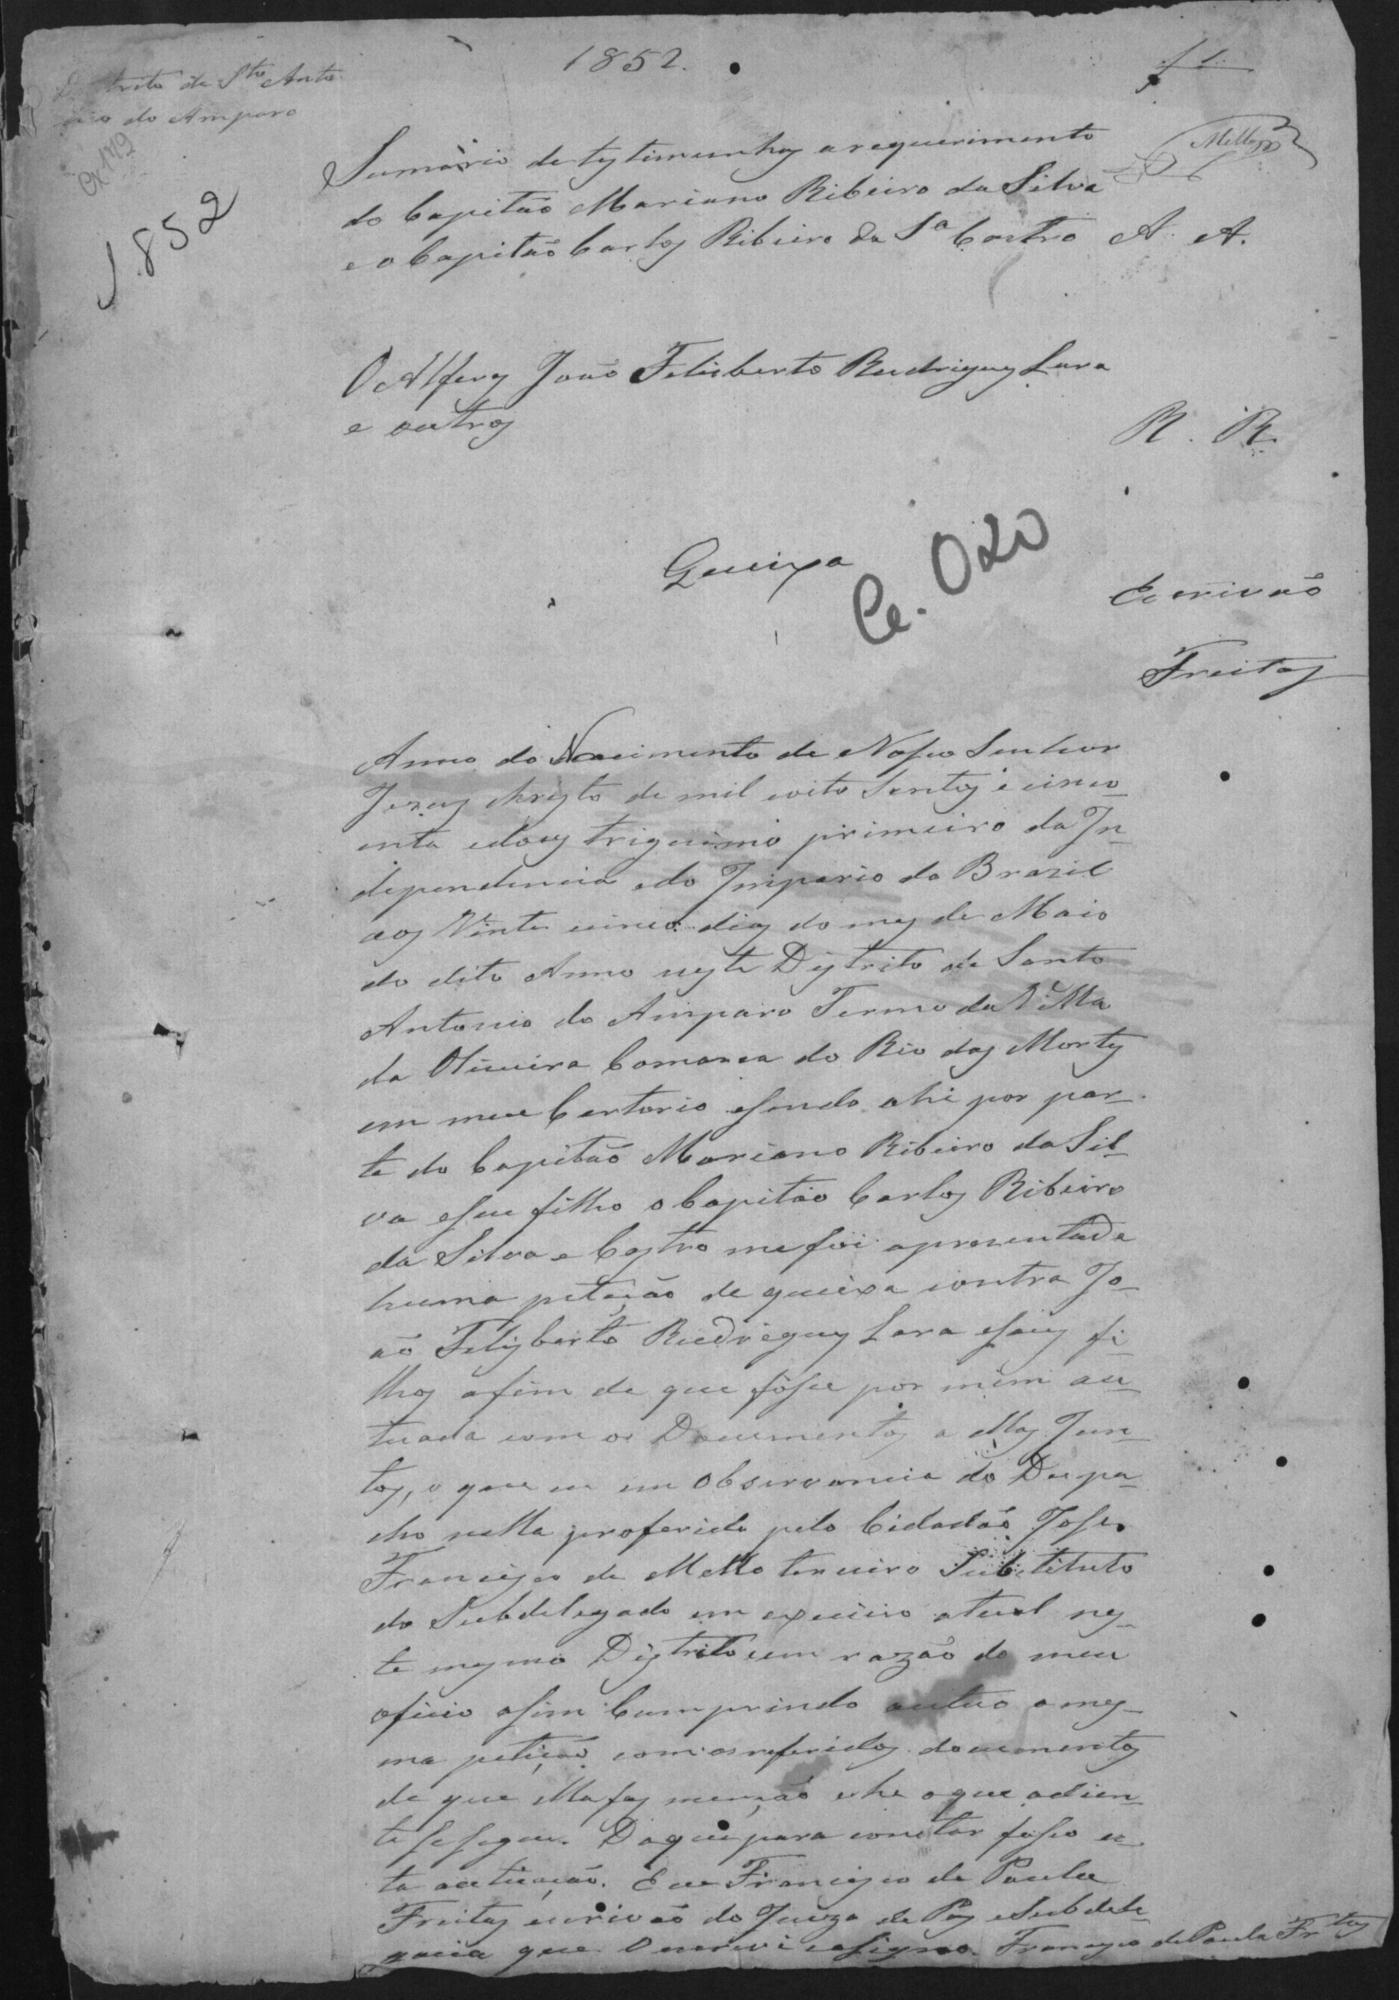 1852.
f 1
Distrito de Sto Anto
nio do Amparo
cx 112
1852
Mello
Sumario de testimunhas a requerimento
do Capitão Mariano Ribeiro da Silva
e o Capitão Carlos Ribeiro da Sa Castro A. A.
O Alferes João Felisberto Rudrigues Lara
e outros
R. R.
Queixa
Ce. 020
Escrivão
Freitas
Anno do Nascimento de Nosso Senhor
Jezus Christo de mil oito sentos e cinco
enta e dous trigesimo primeiro da In
dependencia e do Imperio do Brazil
aos Vinte cinco dias do mes de Maio
do dito Anno neste Distrito de Santo
Antonio do Amparo Termo da Villa
da Oliveira Comarca do Rio das Mortes
em meu Cartorio esendo ahi por par
te do Capitão Mariano Ribeiro da Sil
va eseu filho o Capitão Carlos Ribeiro
da Silva e Castro me foi apresentada
huma petição de queixa contra Jo
ão Felisberto Rudrigues Lara eseus fi
lhos afim de que fosse por mim au
tuada com os Documentos a ella Jun
tos, o que eu em Observancia do Despa
cho nella proferido pelo Cidadão Jose
Francisco de Mello terceiro Substituto
do Subdelegado em exercicio atual nes
te mesmo Distrito em razão do meu
oficio asim Cumprindo autuo a mes
ma petição com os referidos documentos
de que ella faz menção e he o que adien
te se segue. Do que para constar faço es
ta autuação. Eu Francisco de Paula
Freitas escrivão do Juizo de Paz e Subdele
gacia que o escrevi e asigno. Francisco de Paula Frtas